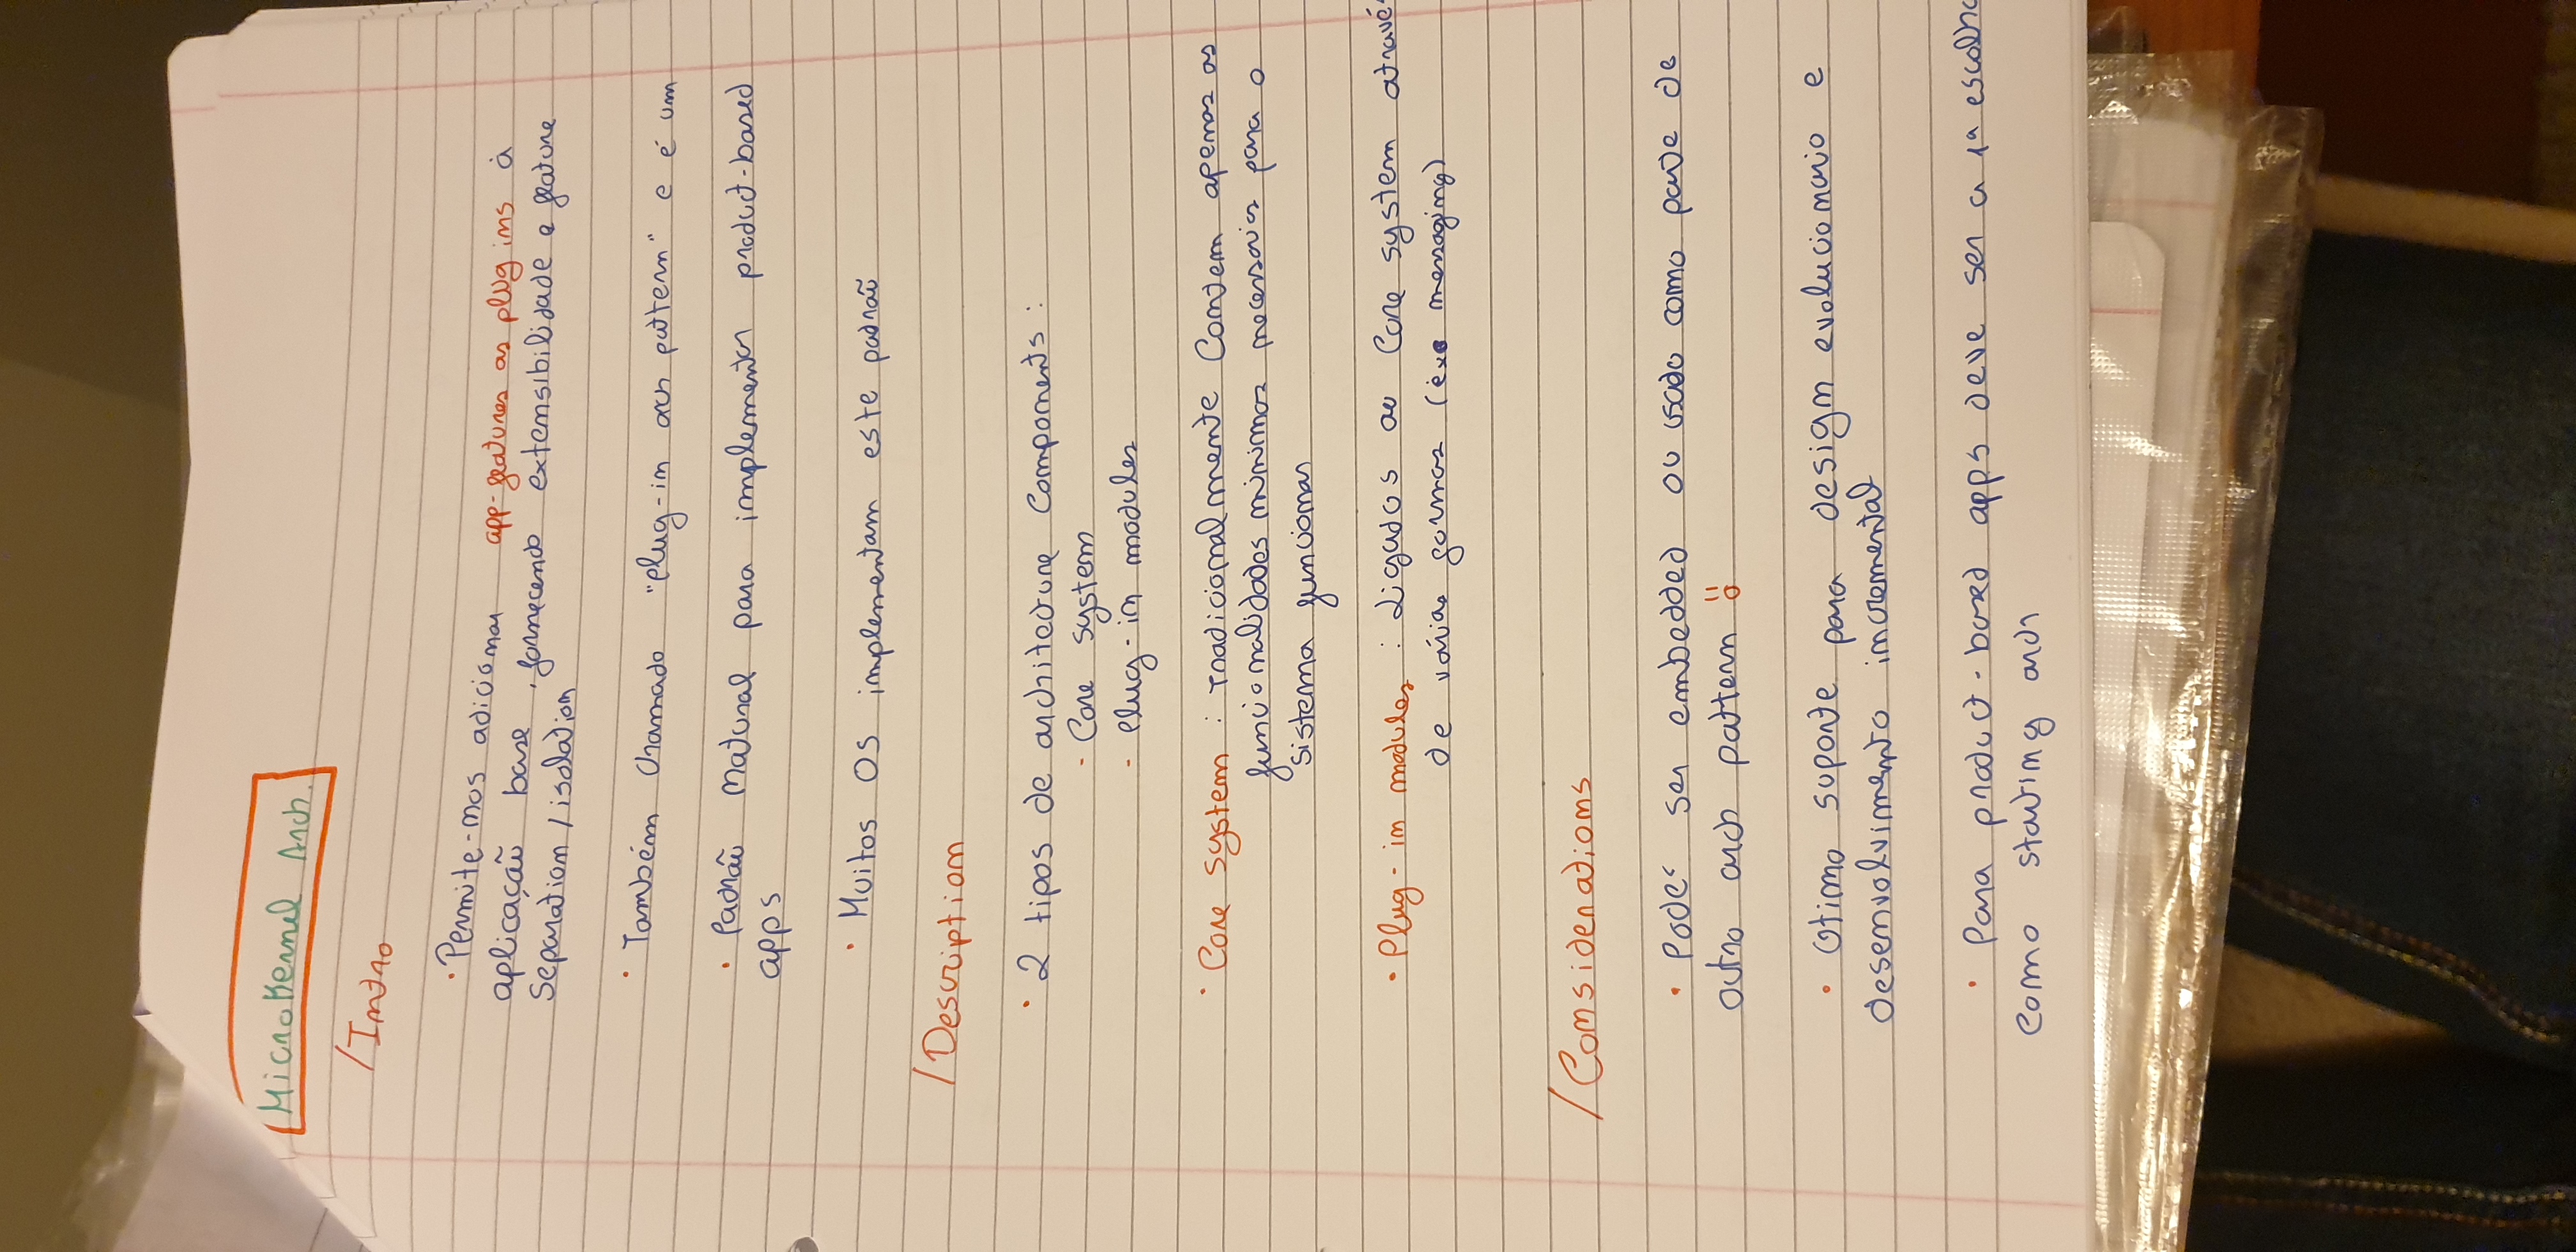 MicroKernel Arch.
/Intro
· Permite-nos adicionar app-features as plug ins à
aplicação base, fornecendo extensibilidade e feature
Separation / isolation
· Também chamado "plug-in arch pattern" e é um
· Padrão natural para implementar product-based
apps
· Muitos OS implementam este padrão
/Description
· 2 tipos de architecture Components :
- Core system
- Plug-in modules
· Core system : tradicionalmente Contem apenas as
funcionalidades minimas necessarias para o
sistema funcionar
· Plug-in modules : Ligados ao Core system através
de várias formas (ex: messaging)
/Considerations
· Pode ser embedded ou usado como parte de
outro arch pattern !!
· Otimo suporte para design evolucionario e
desenvolvimento incremental
· Para product-based apps deve ser a 1ª escolha
como starting arch